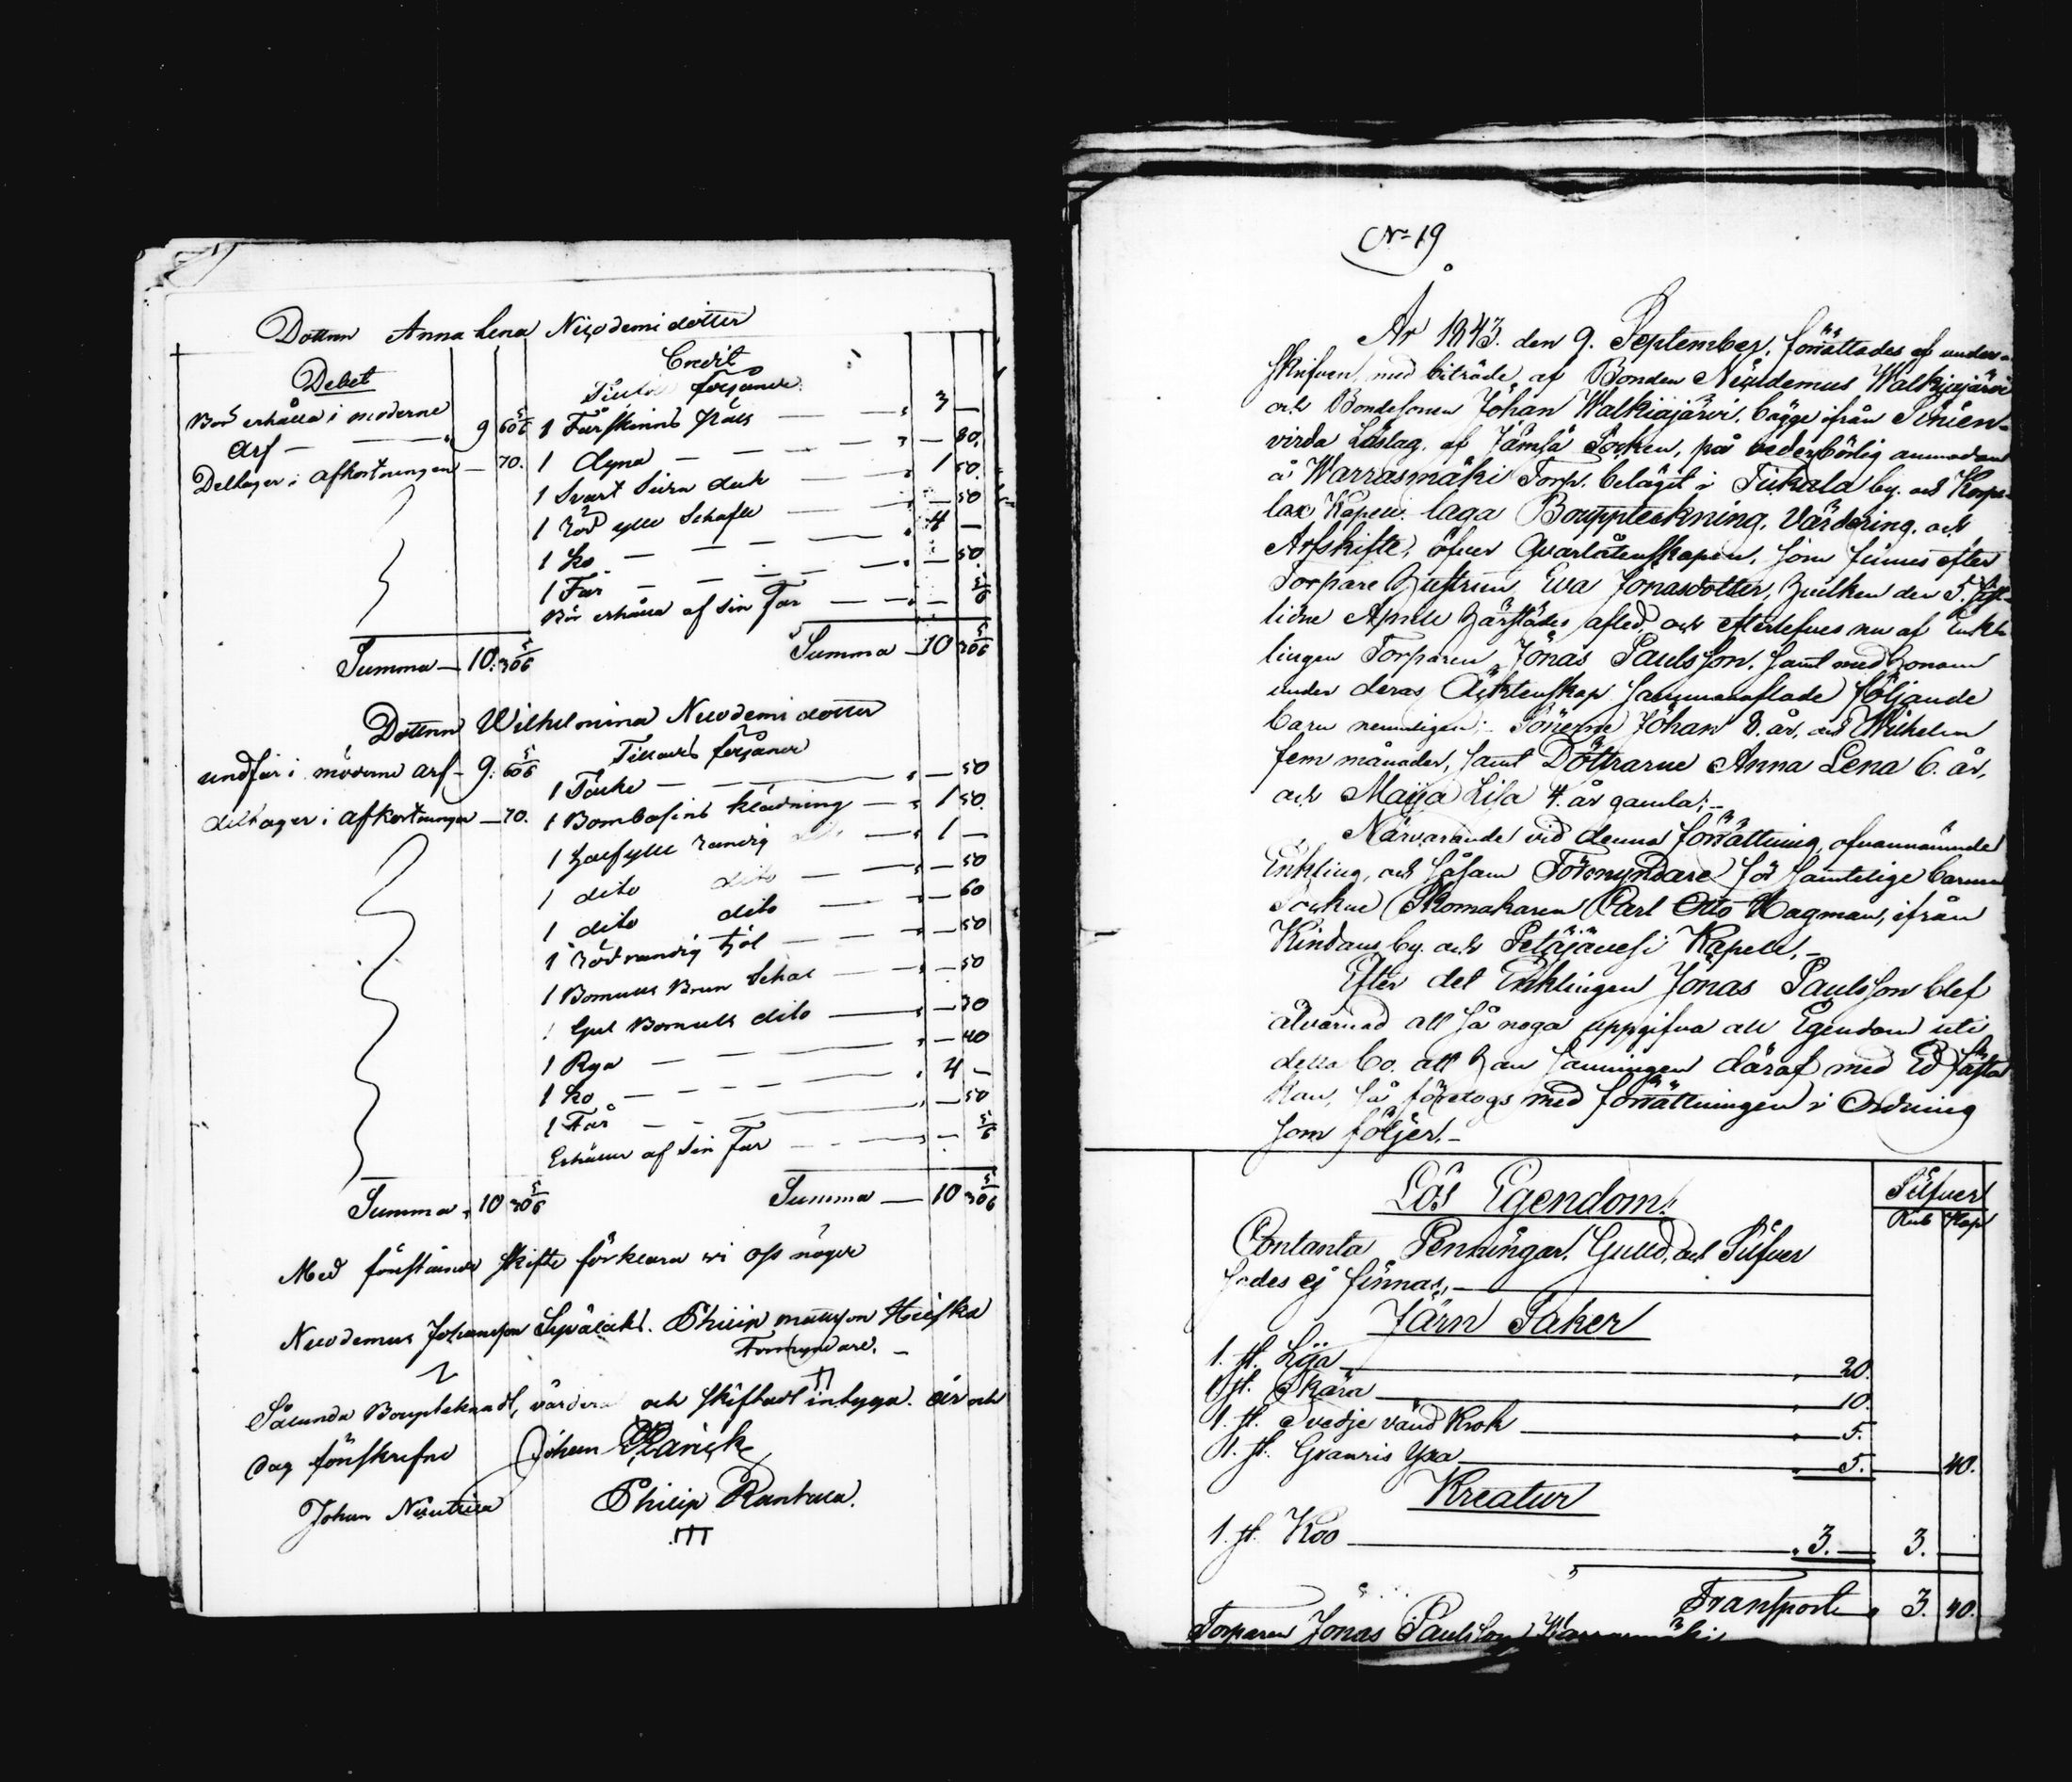 Dottren Anna Lena Nicodemi dotter
Debet
Credit
Bör erhålla i moderne
Arf — 9 60 5/6
Deltager i afkortningen — 70.
1 Fårskinns fräls — 3 —
1 dyna — — 80.
1 Svart Siden duk — 1 50.
1 röd ylle Schafle — — 50
1 Ko — 4 —
1 Får — — 50
Bör erhålla af sin Far — — 5/6
Summa — 10. 30 5/6
Summa — 10 30 5/6
Dottren Wilhelmina Nicodemi dotter
undfår i möderne arf — 9. 60 5/6
deltager i afkortningen — 70.
1 Täcke — — 50
1 Bombasins klädning — 1 50.
1 halfylle randig — 1 —
1 dito dito — — 50
1 dito dito — — 60
1 rödrandig kjol — — 50
1 Bomulls Brun Schal — — 50
1 Gul Bomulls dito — — 30
1 Rya — — 40
1 Ko — 4 —
1 Får — — 50
Erhåller af sin Far — — 5/6
Summa 10 30 5/6
Summa — 10 30 5/6
Med förestående skifte förklara wi oss nögde
Nicodemus Johansson Philip Mattsson
Förmyndare. —
Sålunda Boupteknadt, värderadt och skiftadt intyga. år och
dag förrskrefne Johan
Johan Philip Rantala.
N:o 19
År 1843. den 9. September, förrättades af under-
skrifven, med biträde af Bonden Nicodemus Walkiajärvi
och Bondesonen Johan Walkiajärvi, bägge ifrån
virda Låslag, af Jämsä Socken, på vederbörlig anmodan
å Warrasmäki Torp. beläget i Tiihala by. och Korpi-
lax Kapell. laga Bouppteckning, Värdering, och
Arfskifte, öfver Qvarlåtenskapen, som finnes efter
Torpare Hustrun, Eva Jonasdotter, hvilken den 5. sist-
lidne Aprill härstädes afled, och efterlefves nu af Enkl-
lingen Torparen, Jonas Paulsson, samt med honom
under deras Äcktenskap sammanaflade följande
barn nemligen: Sönerne Johan 8. år, och Wilhelm
fem månader, samt Döttrarne Anna Lena 6. år,
och Maija Lisa 4. år gamla; —
Närvarande vid denna förrättning, ofvannämnde
Enkling, och såsom Förmyndare för samtelige barnen
Sockne Skomakaren Carl Otto Hagman, ifrån
Kindaus by. och Petäjävesi Kapell. —
Efter det Enklingen Jonas Paulsson blef
alvarnad att så noga uppgifva all Egendom uti
detta bo. att han sanningen däraf med Ed fästa
kan, så företogs med förrättningen i Ordning
som följer. —
Lös Egendom.
Silfver
Rub Kop
Contanta Penningar, Guld, och Silfver
sades ej finnas, —
Järn Saker
1. st. Lija — 20.
1. st. Skära — 10.
1. st. Svedje vänd Krok — 5.
1. st. Granris Yxa — 5. — 40.
Kreatur
1. st. Koo — 3. — 3. —
Transport 3. 40.
Torparen Jonas Paulsson Warrasmäki